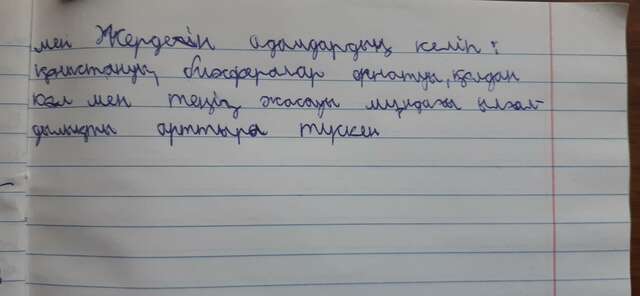 мен Жерден адамдардың келіп
қоныстануы, биосфералар орнатуы, қолдан
көл мен теңіз жасауы мұндағы ылғал-
дылықты арттыра түскен